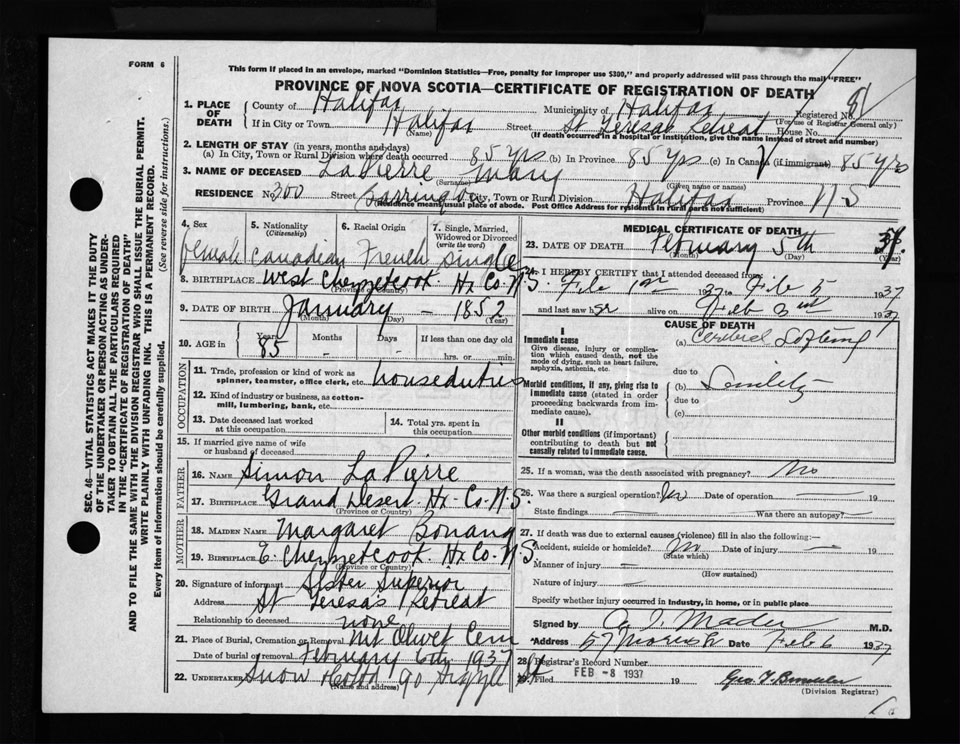 FORM 6
This form if placed in an envelope, marked "Dominion Statistics—Free, penalty for improper use $300," and properly addressed will pass through the mail "FREE"
PROVINCE OF NOVA SCOTIA—CERTIFICATE OF REGISTRATION OF DEATH
SEC. 46—VITAL STATISTICS ACT MAKES IT THE DUTY
OF THE UNDERTAKER OR PERSON ACTING AS UNDER-
TAKER TO OBTAIN ALL THE PARTICULARS REQUIRED
IN THE "CERTIFICATE OF REGISTRATION OF DEATH"
AND TO FILE THE SAME WITH THE DIVISION REGISTRAR WHO SHALL ISSUE THE BURIAL PERMIT.
WRITE PLAINLY WITH UNFADING INK. THIS IS A PERMANENT RECORD.
Every item of information should be carefully supplied. (See reverse side for instructions.)
1. PLACE OF DEATH County of Halifax Municipality of Halifax Registered No.
(For use of Registrar General only)
If in City or Town Halifax Street St Teresas Retreat House No.
(Name) (If death occurred in a hospital or institution, give the name instead of street and number)
2. LENGTH OF STAY (in years, months and days)
(a) In City, Town or Rural Division where death occurred 85 yrs (b) In Province 85 yrs (c) In Canada (if immigrant) 85 yrs
3. NAME OF DECEASED LaPierre Mary
(Surname) (Given name or names)
RESIDENCE No. 300 Street Barrington City, Town or Rural Division Halifax Province N S
Residence means usual place of abode. Post Office Address for residents in rural parts not sufficient)
4. Sex 5. Nationality (Citizenship) 6. Racial Origin 7. Single, Married, Widowed or Divorced (write the word)
female Canadian French single
8. BIRTHPLACE West Chezzetcook Hx Co. N.S.
(Province or Country)
9. DATE OF BIRTH January – 1852
(Month) (Day) (Year)
10. AGE in Years Months Days If less than one day old
85 - - hrs. or min.
OCCUPATION
11. Trade, profession or kind of work as spinner, teamster, office clerk, etc. houseduties
12. Kind of industry or business, as cotton-mill, lumbering, bank, etc.
13. Date deceased last worked at this occupation
14. Total yrs. spent in this occupation
15. If married give name of wife or husband of deceased
FATHER
16. NAME Simon LaPierre
17. BIRTHPLACE Grand Desert Hx. Co. N.S.
(Province or Country)
MOTHER
18. MAIDEN NAME Margaret Bonang
19. BIRTHPLACE E. Chezzetcook Hx Co. N S
(Province or Country)
20. Signature of informant Sister Superior
Address St Teresa's Retreat
Relationship to deceased none
21. Place of Burial, Cremation or Removal Mt Olivet Cem
Date of burial or removal February 6th 1937
22. UNDERTAKER Snow 90 Argyle St
(Name and address)
MEDICAL CERTIFICATE OF DEATH
23. DATE OF DEATH February 5th 37
(Month) (Day) (Year)
24. I HEREBY CERTIFY that I attended deceased from
Feb 1st 1937 to Feb 5 1937
and last saw her alive on Feb 3rd 1937
CAUSE OF DEATH
I
Immediate cause
Give disease, injury or complication which caused death, not the mode of dying, such as heart failure, asphyxia, asthenia, etc.
(a) Cerebral Softening
due to
Morbid conditions, if any, giving rise to immediate cause (stated in order proceeding backwards from immediate cause).
(b) Senility
due to
(c)
II
Other morbid conditions (if important) contributing to death but not causally related to immediate cause.
25. If a woman, was the death associated with pregnancy? No
26. Was there a surgical operation? No Date of operation 19
State findings Was there an autopsy?
27. If death was due to external causes (violence) fill in also the following:—
Accident, suicide or homicide? No Date of injury — 19
(State which)
Manner of injury —
(How sustained)
Nature of injury —
Specify whether injury occurred in industry, in home, or in public place
Signed by A. J. Mader M.D.
Address 57 Morris St Date Feb 6 1937
28. Registrar's Record Number
29. Filed FEB -8 1937 19
(Division Registrar)